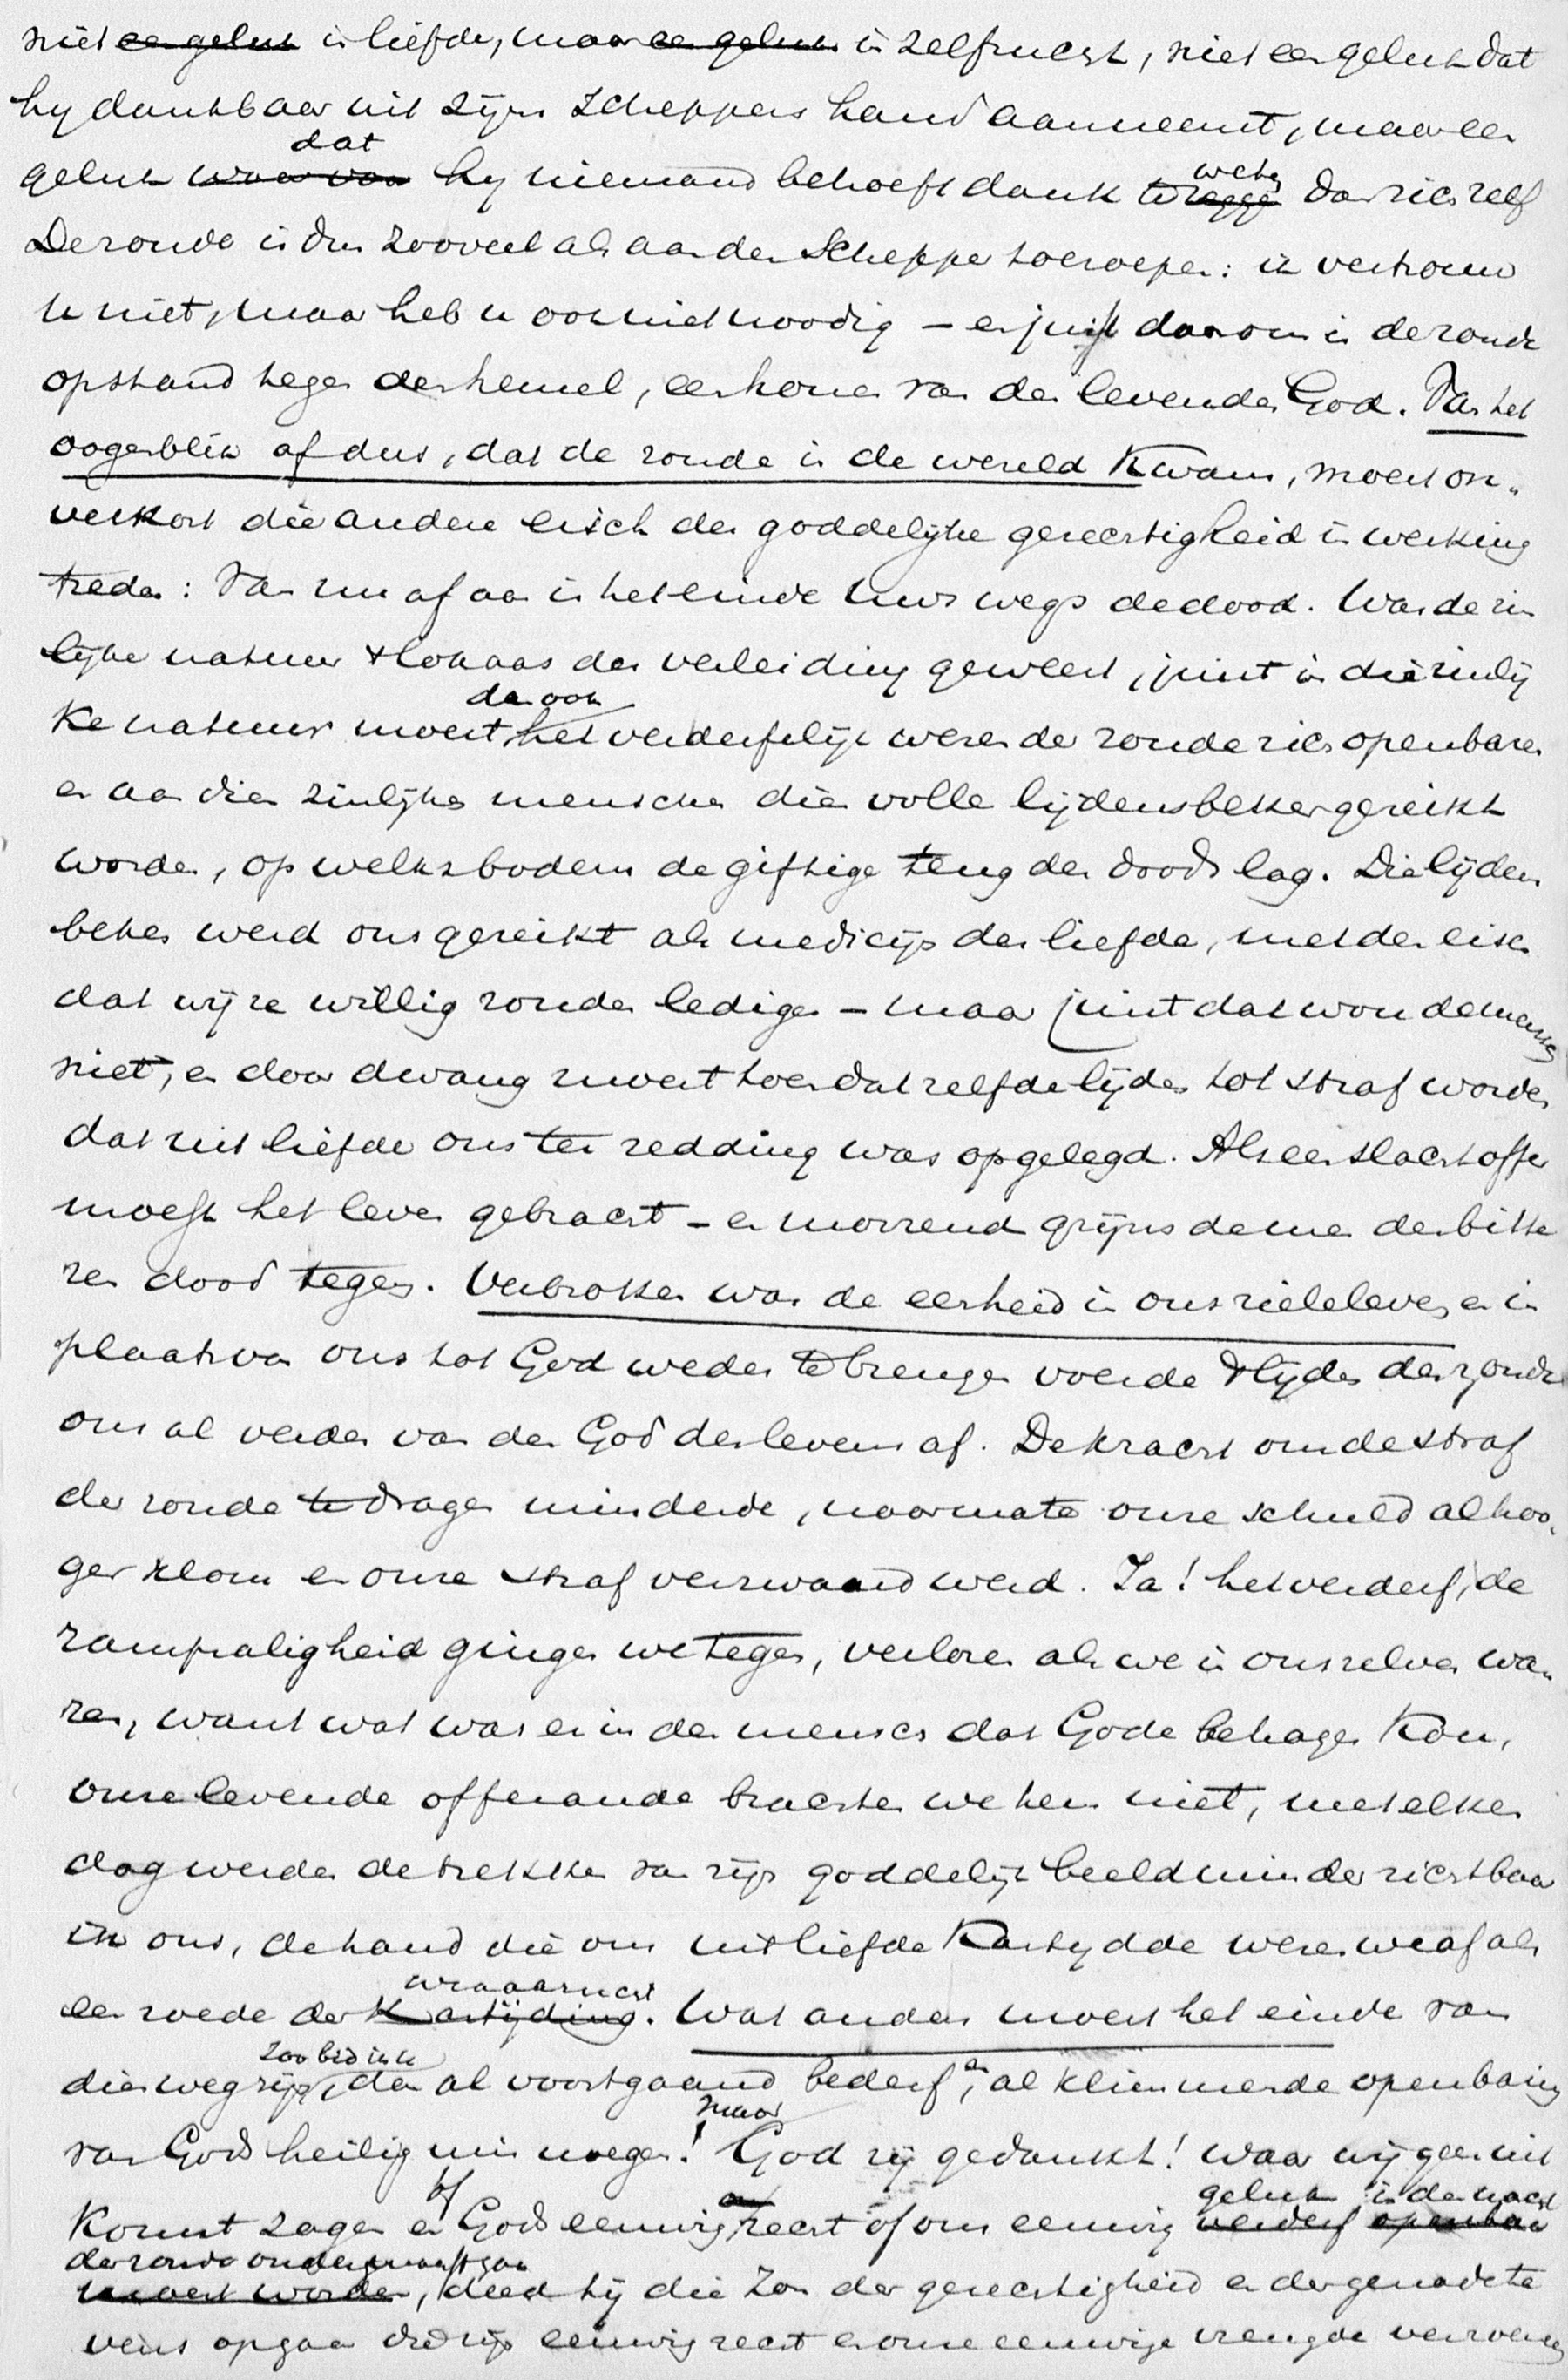 niet een geluk in liefde, maar een geluk in zelfzucht, niet een geluk dat
hy dankbaar uit zijns Scheppers hand aanneemt, maar een
dat
geluk waar van hy niemand behoeft dank te zeggen weten dan zich zelf
De zonde is dus zooveel als aan den Schepper toeroepen: ik vertrouw
u niet, maar heb u ook niet noodig – en juist daarom is de zonde
opstand tegen den hemel, een honen van den levenden God. Van het
oogenblik af dus, dat de zonde in de wereld kwam, moest on„
verkort die andere eisch der goddelijke gerechtigheid in werking
treden: Van nu af aan is het einde uws wegs de dood. Was de zin
lijke natuur 't lokaas der verleiding geweest, juist in die zinlij
dan ook
ke natuur moest het verderfelijk wezen der zonde zich openbaren
en aan dien zinlijken mensch die volle lijdensbeker gereikt
worden, op welks bodem de giftige teug des doods lag. Die lijdens
beker werd ons gereikt als medicijn der liefde, met den eisch
dat wij ze willig zouden ledigen – maar juist dat wou de mensch
niet, en door dwang moest toen dat zelfde lijden tot straf worden
dat uit liefde ons ter redding was opgelegd. Als een slachtoffer
moest het leven gebracht – en morrend grijns de men den bitte
ren dood tegen. Verbroken was de eenheid in ons zieleleven en in
plaats van ons tot God weder te brengen voerde 't lijden der zonde
ons al verder van den God des levens af. De kracht om de straf
der zonde te dragen minderde, naarmate onze schuld al hoo„
ger klom en onze straf verzwaard werd. Ja! het verderf, de
rampzaligheid gingen we tegen, verloren als we in ons zelven wa„
ren, want wat was er in den mensch dat Gode behagen kon,
onze levende offerande brachten we hem niet, met elken
dag werden de trekken van zijn goddelijk beeld minder zichtbaar
in ons, de hand die ons uit liefde kastydde wezen we af als
wraakzucht
een roede der kastijding. Wat anders moest het einde van
zoo bid ik u
dien weg zijn, dan al voortgaand bederf, en al klimmende openbaring
maar
van Gods heilig misnoegen! God zij gedankt! waar wij geen uit
geluk in den nacht
komst zagen en of Gods eeuwig recht of ons eeuwig verderf openbaar
der zonde onder moest gaan
moest worden, deed hij die Zon der gerechtigheid en der genade te
vens opgaan die zijn eeuwig recht en onze eeuwige vreugde verzoenen